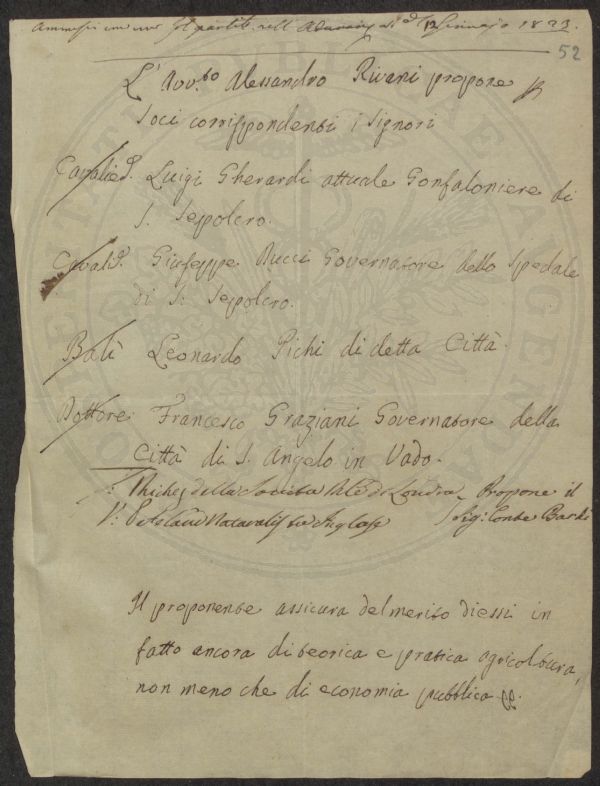 Ammessi con partito nell'Adunanza del dì 12 Gennajo 1823.
52
L'Avv.to Alessandro Rivani propone
Soci corrispondenti i Signori
Cavalie.
Luigi Gherardi attuale Gonfaloniere di
S. Sepolcro.
Cavali.
Giuseppe Mucci Governatore dello Spedale
di S. Sepolcro.
Balì Leonardo Pichi di detta Città.
Dottore Francesco Graziani Governatore della
Città di S. Angelo in Vado.
della Società di Londra Propone il
Sig. Conte Bardi
Il proponente assicura del merito di essi in
fatto ancora di teorica e pratica agricoltura,
non meno che di economia pubblica